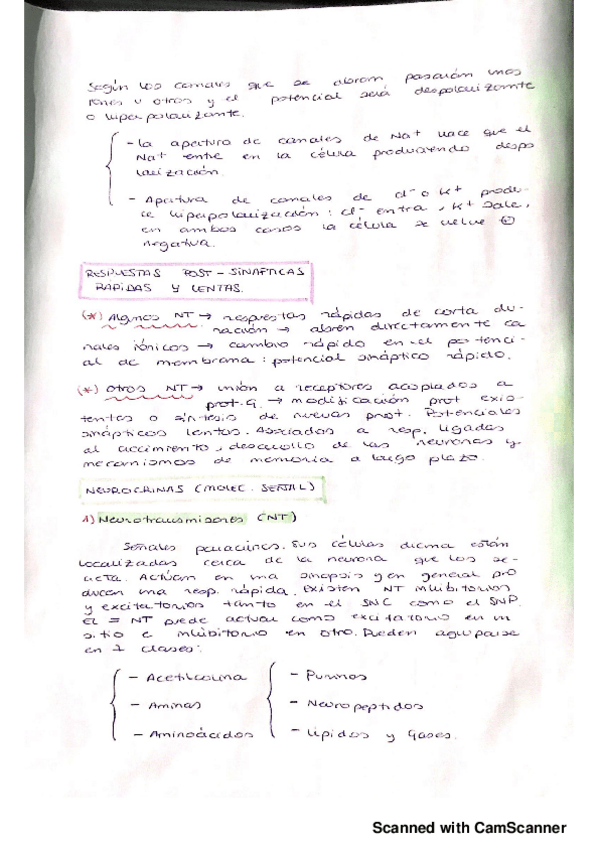 Según los canales que se abran pasarán unos
iones u otros y el potencial será despolarizante
o hiperpolarizante.
- La apertura de canales de Na+ hace que el
Na+ entre en la célula produciendo despo
larización.
- Apertura de canales de cl- o K+ produ-
ce hiperpolarización: cl- entra, K+ sale,
en ambos casos la célula se vuelve ⊕
negativa.
RESPUESTAS POST-SINÁPTICAS
RÁPIDAS Y LENTAS.
(*) Algunos NT → respuestas rápidas de corta du-
ración → abren directamente ca
nales iónicos → cambio rápido en el potenci-
al de membrana: potencial sináptico rápido.
(*) Otros NT → unión a receptores acoplados a
prot. G. → modificación prot exis-
tentes o síntesis de nuevas prot. Potenciales
sinápticos lentos. Asociados a resp. ligadas
al crecimiento, desarrollo de las neuronas y
mecanismos de memoria a largo plazo.
NEUROCRINAS (MOLEC. SEÑAL)
1) Neurotransmisores (NT)
Señales paracrinas. Sus células diana están
localizadas cerca de la neurona que los se-
creta. Actúan en una sinapsis y en general pro
ducen una resp. rápida. Existen NT inhibitorios
y excitatorios tanto en el SNC como el SNP.
El = NT puede actuar como excitatorio en un
sitio e inhibitorio en otro. Pueden agruparse
en 7 clases:
- Acetilcolina
- Aminas
- Aminoácidos
- Purinas
- Neuropeptidos
- Lípidos y Gases.
Scanned with CamScanner